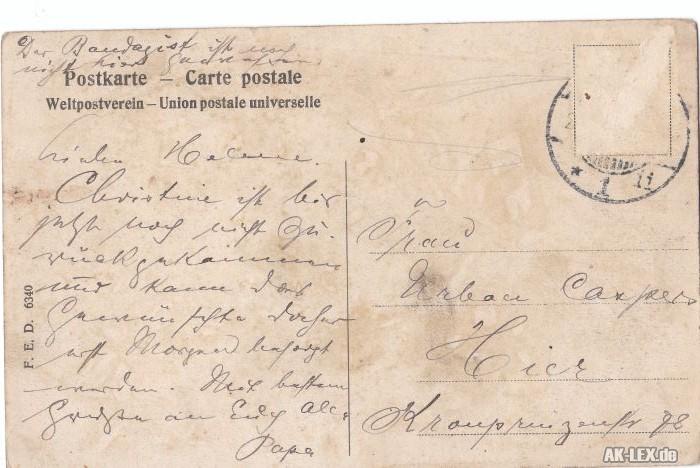 Der Bandagist ist noch
nicht hier
Postkarte – Carte postale
Weltpostverein – Union postale universelle
Helene.
Christine ist bis
jetzt noch nicht zu-
rückgekommen
und kann das
Gewünschte daher
erst Morgen besorgt
werden. Mit besten
Grüßen an Euch Alle
Papa
F. E. D. 6340
* 1 11
Frau
Urban Caspers
Hier
Kronprinzenstr 78
AK-LEX.de